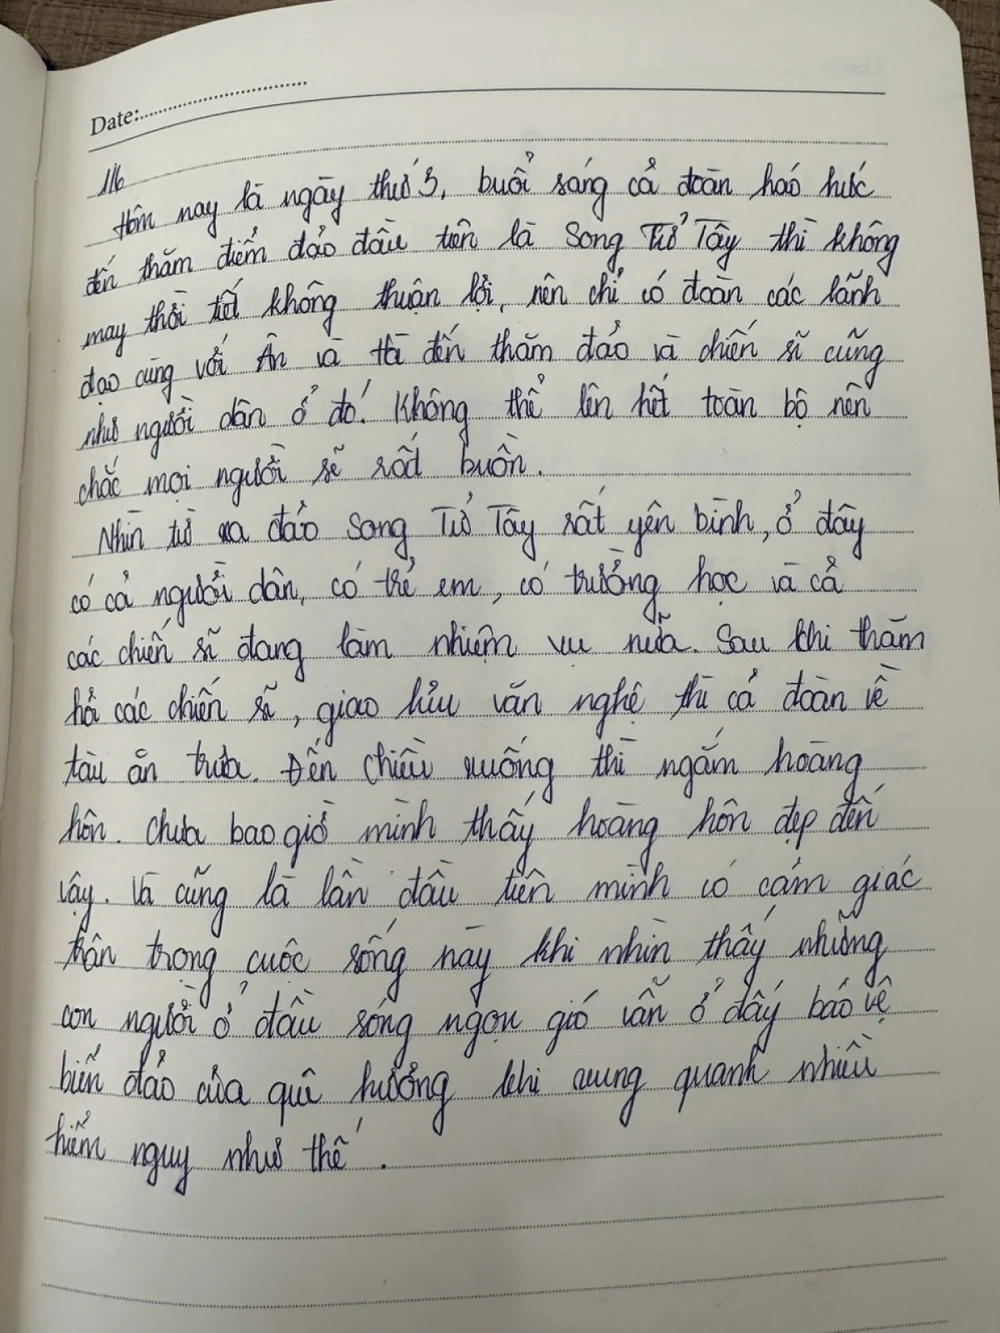 Date:
1/6
Hôm nay là ngày thứ 3, buổi sáng cả đoàn háo hức
đến thăm điểm đảo đầu tiên là Song Tử Tây thì không
may thời tiết không thuận lợi, nên chỉ có đoàn các lãnh
đạo cùng với Ân và Hà đến thăm đảo và chiến sĩ cũng
như người dân ở đó. Không thể lên hết toàn bộ nên
chắc mọi người sẽ rất buồn.
Nhìn từ xa đảo Song Tử Tây rất yên bình, ở đây
có cả người dân, có trẻ em, có trường học và cả
các chiến sĩ đang làm nhiệm vụ nữa. Sau khi thăm
hỏi các chiến sĩ, giao hữu văn nghệ thì cả đoàn về
tàu ăn trưa. Đến chiều xuống thì ngắm hoàng
hôn. Chưa bao giờ mình thấy hoàng hôn đẹp đến
vậy. Và cũng là lần đầu tiên mình có cảm giác
trân trọng cuộc sống này khi nhìn thấy những
con người ở đầu sóng ngọn gió vẫn ở đấy bảo vệ
biển đảo của quê hương khi xung quanh nhiều
hiểm nguy như thế.